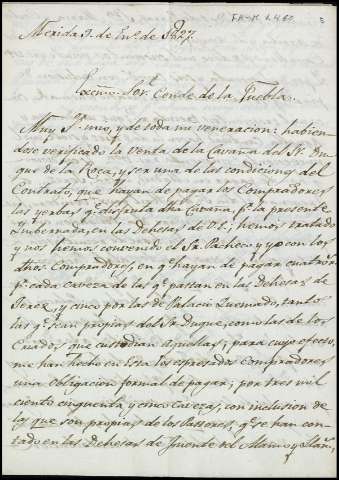 FA-M 1.460
Merida 9. de En.º de 1827.
Excmo. Sor. Conde de la Puebla.
Muy S.r mio, y de toda mi veneracion: habien
dose verificado la venta de la Cavaña del Sr. Du
que de la Roca, y ser una de las condiciones del
Contrato, que hayan de pagar los Compradores
las yerbas q.e disfruta dha Cavaña, p.a la presente
Imbernada, en las dehesas de V.E; hemos tratado
y nos hemos convenido el Sr. Pacheco y yo con los
dhos Compradores, en q.e hayan de pagar cuatro r.s
p.r cada caveza de las q.e pastan en las Dehesas de
Jerez, y cinco por las de Palacio Quemado, tanto
las q.e sean propias del Sr Duque, como las de los
Criados que custodian aquellas; para cuyo efecto,
me han hecho en esta los espresados compradores
una obligacion formal de pagar; por tres mil
ciento cinquenta y cinco cavezas, con inclusion de
los que son propias de los Pastores, q.e se han con
tado en las Dehesas de Fuente del Alamo y